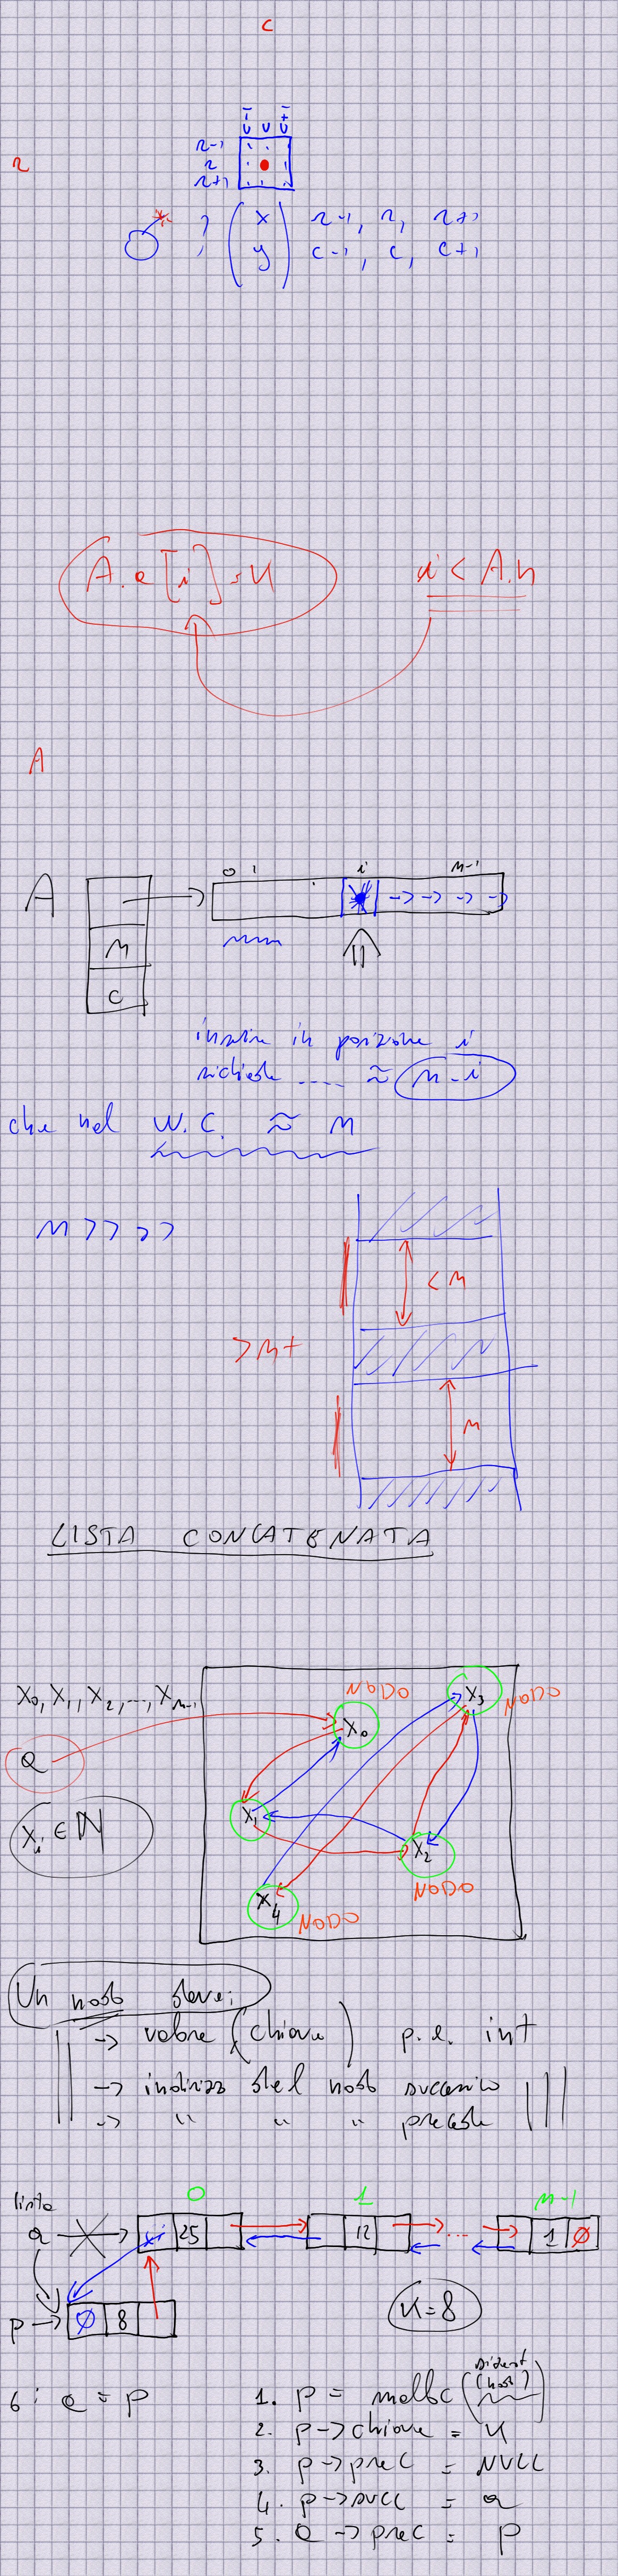 c
- +
r-1
r
r+1
r
? (x y) r-1, r, r+1
c-1, c, c+1
A.a[i]=k
i < A.n
A
0 1 i n-1
A
n
c
inserire in posizione i
richiede ..... ≈ n-i
che nel W.C. ≈ n
n >> >>
< n
> n+
n
LISTA CONCATENATA
X0, X1, X2, ..., Xn-1
a
Xi ∈ ℕ
NODO
X0
X3
NODO
X1
X2
NODO
X4
NODO
Un nodo deve:
→ valore (chiave) p.e. int
→ indirizzo del nodo successivo
→ " " " precedente
lista
0 1 n-1
a 25 12 ... 1 ∅
p → ∅ 8
K=8
6: a = p
1. p = malloc(sizeof(nodo))
2. p->chiave = K
3. p->prec = NULL
4. p->succ = a
5. a->prec = p